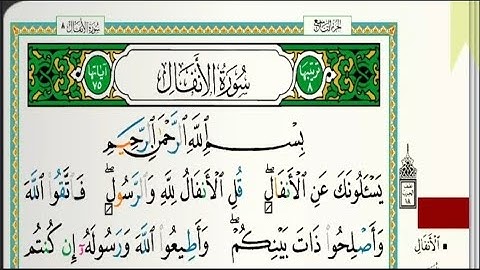 سُورَةُ الأَنْفَال ٨
الجزء التاسع
ترتيبها ٨
سُورَةُ الأَنْفَالِ
آياتها ٧٥
بِسْمِ اللَّهِ الرَّحْمَٰنِ الرَّحِيمِ
يَسْـَٔلُونَكَ عَنِ الْأَنْفَالِ ۖ قُلِ الْأَنْفَالُ لِلَّهِ وَالرَّسُولِ ۖ فَاتَّقُوا اللَّهَ
وَأَصْلِحُوا ذَاتَ بَيْنِكُمْ ۖ وَأَطِيعُوا اللَّهَ وَرَسُولَهُ إِن كُنتُم
الْأَنْفَال